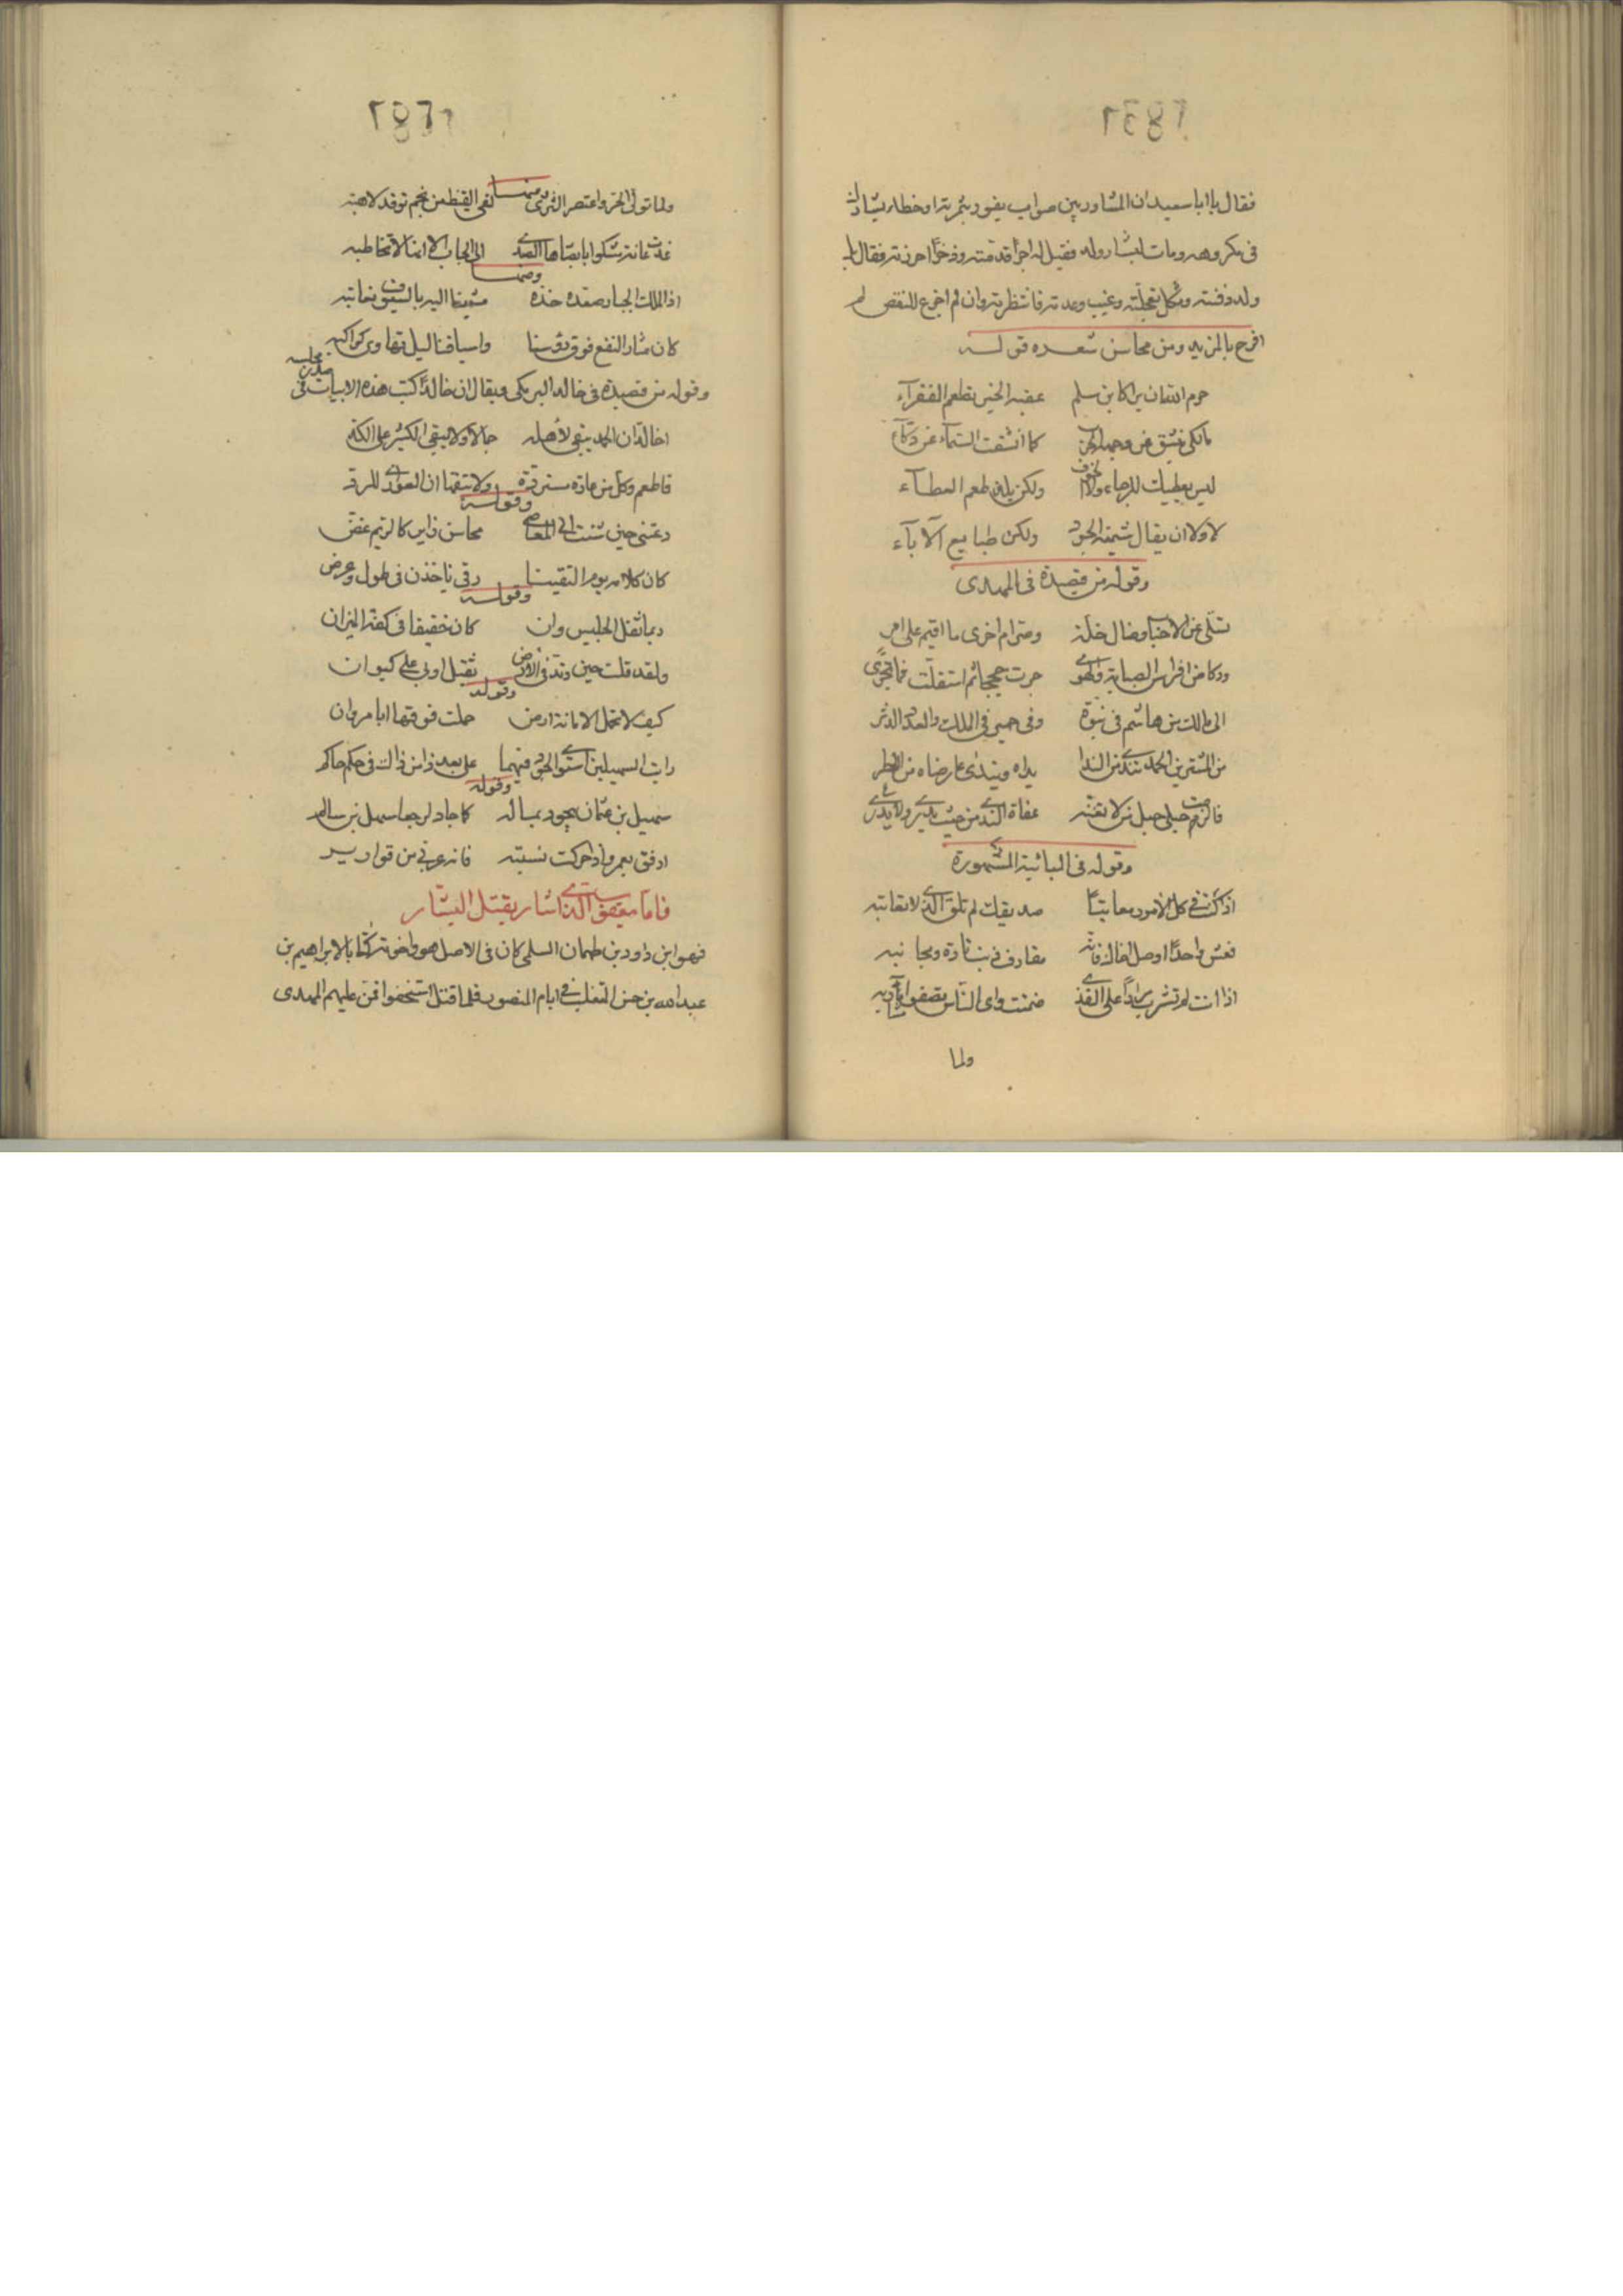 فقال يا ابا سعيد ان المشاور بين صواب يفوز بثمرته او خطاء يشارك
فى مكروهه ومات لبشار ولد فقيل له اجرا قدمته وذخرا احرزته فقال
ولد دفنته وثكل تعجلته وغيب وعدته فانتظرته وان لم اجزع للنقص لم
افرح بالمزيد ومن محاسن شعره قوله
حرم الله ان يرى كابن سلم عقبة الخير مطعم الفقرآء
مالكى ينشق عن وجهه كما انشقت السمآء عن
ليس يعطيك للرجاء ولا الخوف ولكن يلذ طعم العطآء
لا ولا ان يقال شيمته الجود ولكن طبايع الآبآء
وقوله من قصيدة فى المهدى
تسلى عن الاحباب وصال خلة وصرام اخرى ما اقيم على امر
وركاض افراس الصبابة والهوى جرت حججا ثم استقلت فما تجرى
الى مالك من هاشم فى نبوة وفى حمير فى الملك والعدد الدثر
من المشترين الحمد تندى من الندا يداه ويندى عارضاه من العطر
فالزمت حبلى حبل من لا تغبه عفاة الندى من حيث يدرى ولا يدرى
وقوله فى البائية المشهورة
اذا كنت فى كل الامور معاتبا صديقك لم تلق الذى لا تعاتبه
فعش واحدا او صل اخاك فانه مقارف ذنب تارة ومجانبه
اذا انت لم تشرب مرارا على القذى ضمئت واى الناس تصفو مشاربه
ولما
ومنها
ولما تولى الحر واعتصر الثرى لفى القيظ من نجم توقد لاهبه
غدت عانة تشكوا بابصارها الصدى الى الجاب الا انها لا تخاطبه
ومنها
اذا الملك الجبار صعر خده مشينا اليه بالسيوف نعاتبه
كان مثار النقع فوق رؤسنا واسيافنا ليل تهاوى كواكبه
وقوله من قصيدة فى خالد البرمكى ويقال ان خالدا كتب هذه الابيات فى صدر مجلسه
اخالد ان الحمد يبقى لاهله جمالا ولا يبقى الكثير على الكد
فاطعم وكل من عارة مستردة ولا تبقها ان العوارى للرد
وقوله
دعتنى حين شئت الى المعاصى محاسن زاير كالريم غض
كان كلامه يوم التقينا رقى ياخذن فى طول وعرض
وقوله
ربما ثقل الجليس وان كان خفيفا فى كفة الميزان
ولقد قلت حين وتد فى الارض ثقيل اربى على كيوان
وقوله
كيف لا تحمل الامانة ارض حملت فوقها ابا مروان
رايت السهيلين استوى الجود فيهما على بعد ذا من ذاك فى حكم حاكم
وقوله
سهيل بن عثمان يجود بماله كما جاد لوجعا سهيل بن سالم
ارفق بعمرو اذا حركت نسبته فانه عربى من قوارير
فاما يعقوب الذى اشار بقتل البشار
فهو ابن داود بن طهمان السلمى كان فى الاصل هو واخوته كتابا لابراهيم بن
عبدالله بن حسن المتغلب فى ايام المنصور فلما قتل استخفوا فمن عليهم المهدى